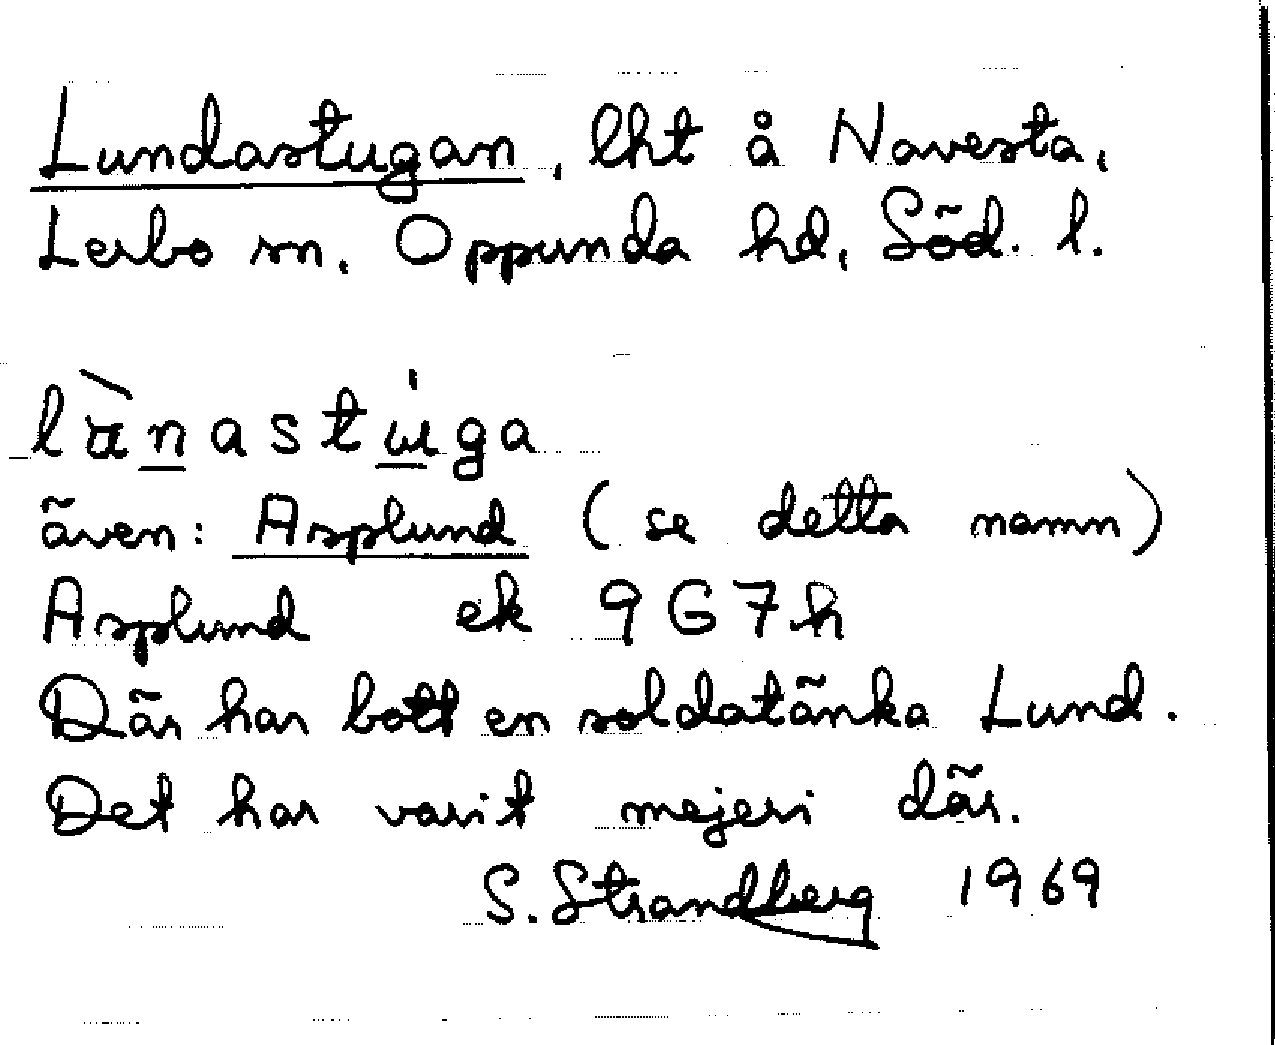 Lundastugan, lht å Navesta,
Lerbo sn, Oppunda hd, Söd. l.
lànastúga
även: Asplund (se detta namn)
Asplund ek 9G7h
Där har bott en soldatänka Lund.
Det har varit mejeri där.
S. Strandberg 1969